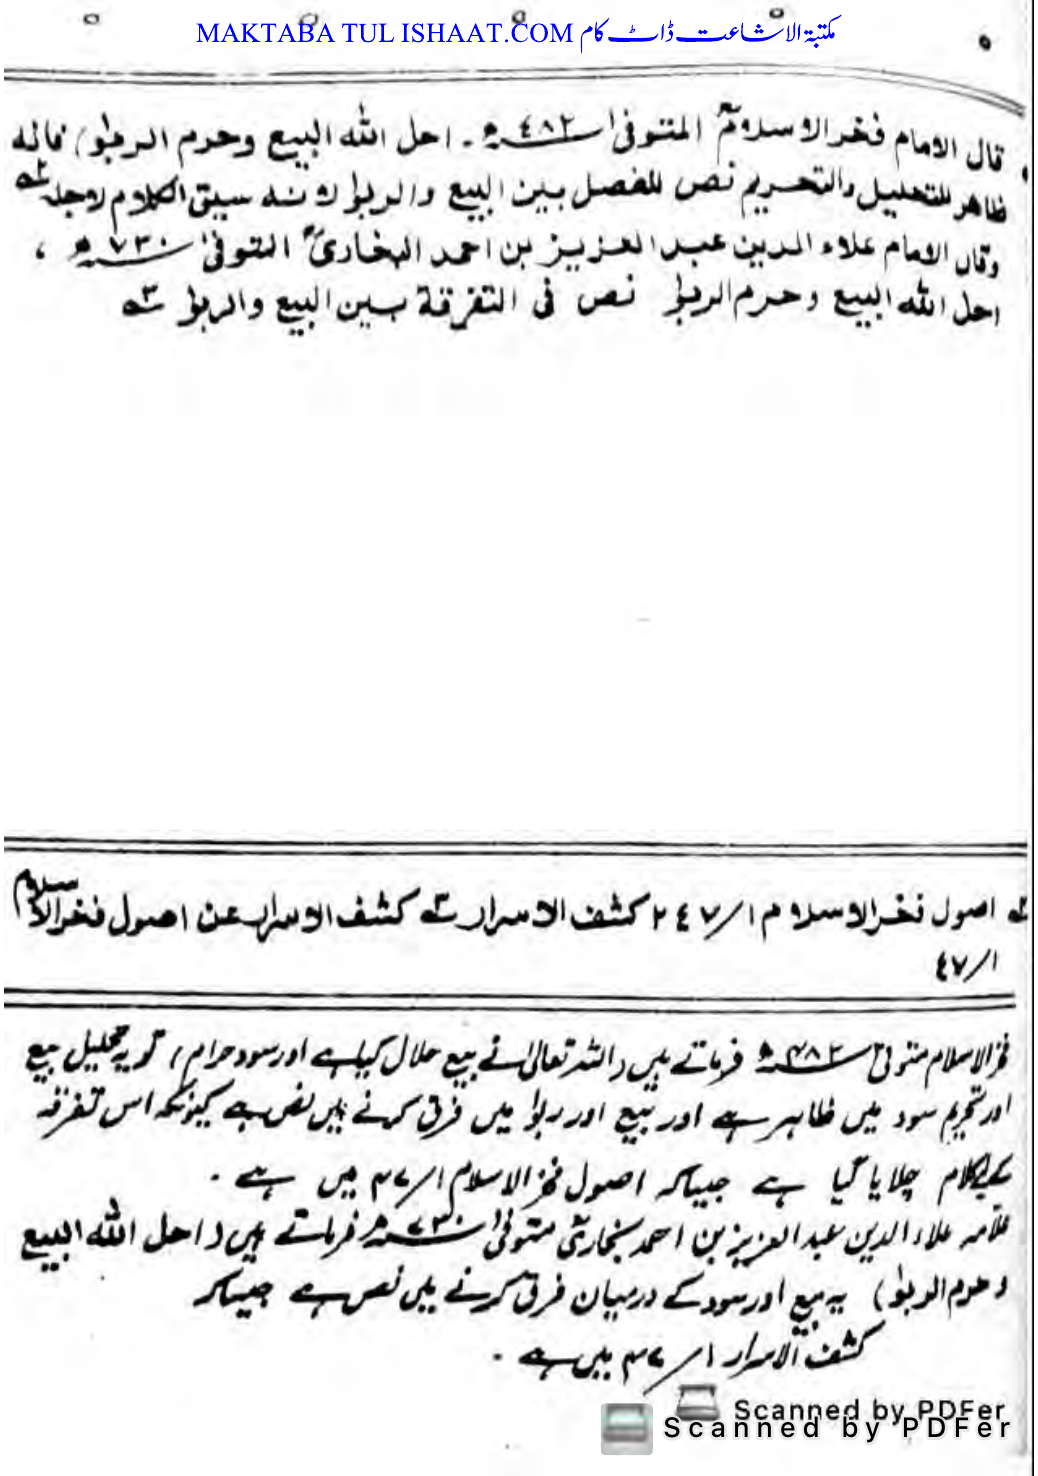 MAKTABA TUL ISHAAT.COM مکتبۃ الاشاعت ڈاٹ کام
٥
قال الامام فخر الاسلامؒ المتوفیٰ ٤٨٢ھ۔ احل الله البیع وحرم الربوٰا) فانه
ظاهر للتحلیل والتحریم نص للفصل بین البیع والربوٰا لانه سیق الکلام لاجله
وقال الامام علاء الدین عبد العزیز بن احمد البخاریؒ المتوفیٰ ٧٣٠ھ ،
احل الله البیع وحرم الربوٰا نص فی التفرقة بین البیع والربوٰا ٣ے
اصول فخر الاسلام ١/٤٧ ٢ کشف الاسرار ٣ے کشف الاسرار عن اصول فخر الاسلام
١/٤٧
فخر الاسلام متوفیٰ ۴۸۲ھ فرماتے ہیں (اللہ تعالیٰ نے بیع حلال کیا ہے اور سود حرام) تو یہ تحلیل بیع
اور تحریم سود میں ظاہر ہے اور بیع اور ربوٰا میں فرق کرنے میں نص ہے کیونکہ اس تفرقہ
کیلئے کلام چلایا گیا ہے جیسا کہ اصول فخر الاسلام ۱/۴۷ میں ہے ۔
علامہ علاء الدین عبد العزیز بن احمد بخاریؒ متوفیٰ ۷۳۰ھ فرماتے ہیں (احل الله البیع
وحرم الربوٰا) یہ بیع اور سود کے درمیان فرق کرنے میں نص ہے جیسا کہ
کشف الاسرار ۱/۴۷ میں ہے ۔
Scanned by PDFer
Scanned by PDFer